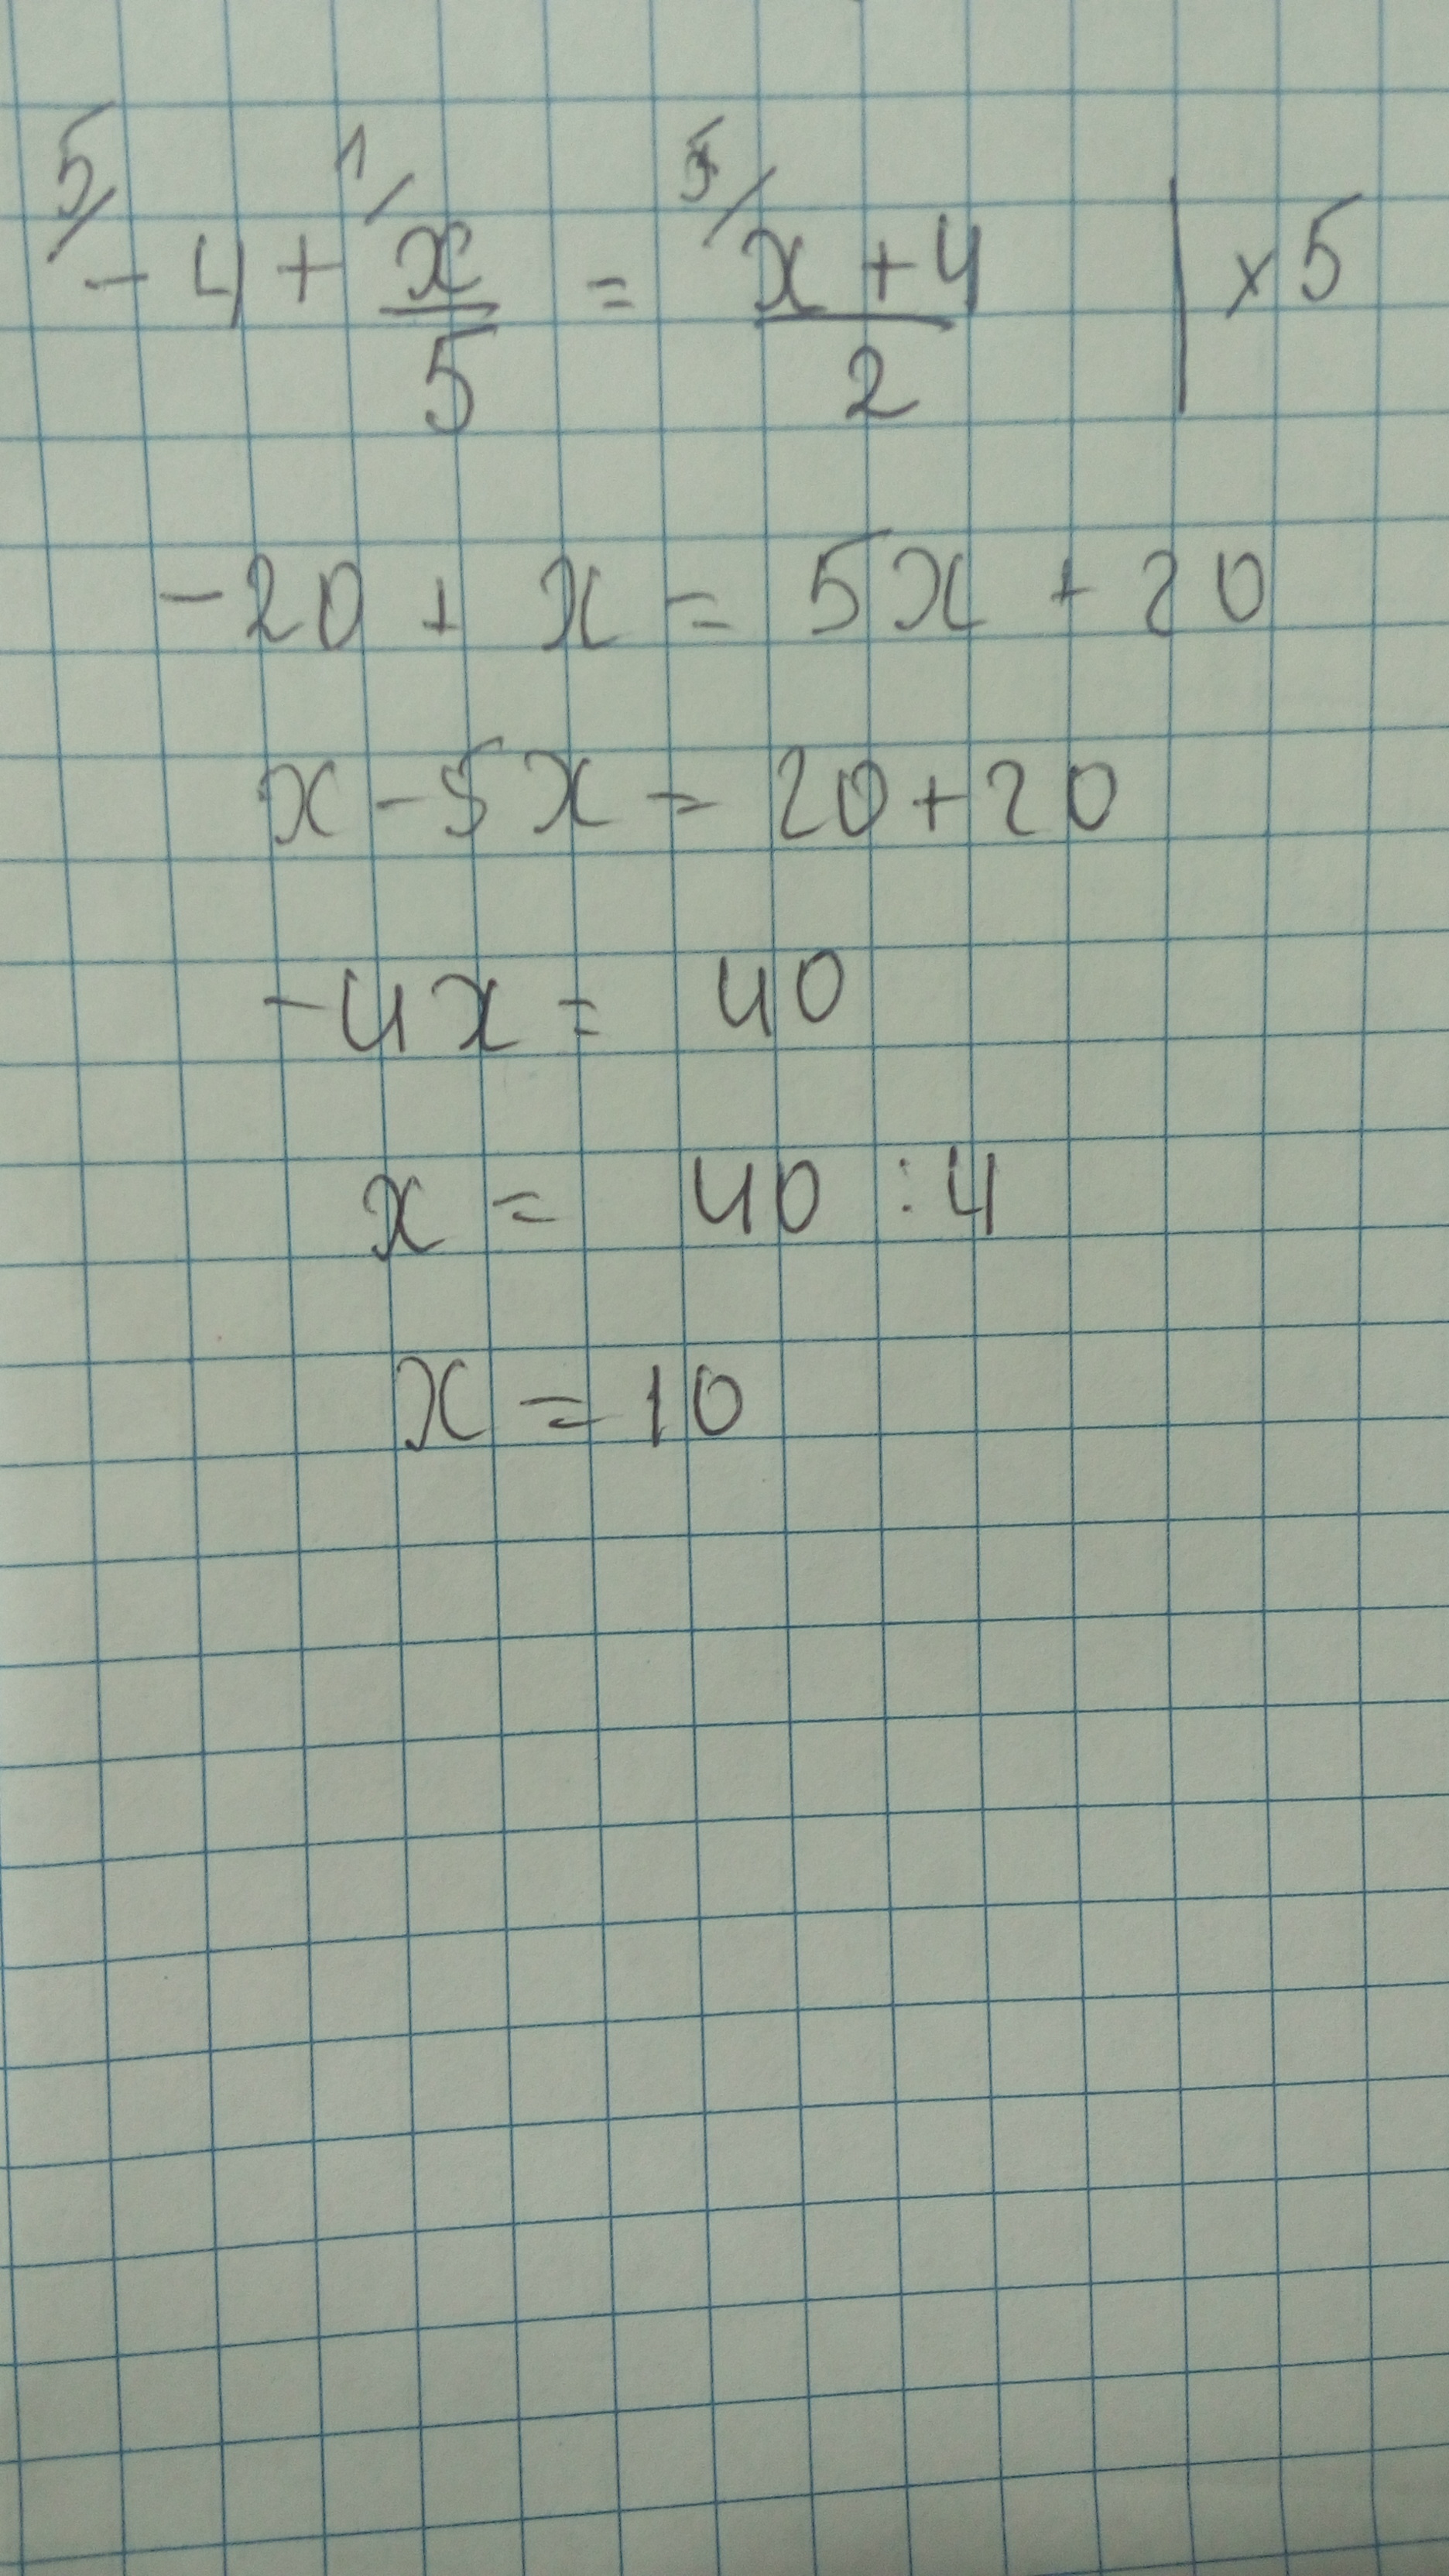 5/ 1/ 5/
-4 + x/5 = (x+4)/2 | ×5
-20 + x = 5x + 20
x - 5x = 20 + 20
-4x = 40
x = 40 : 4
x = 10